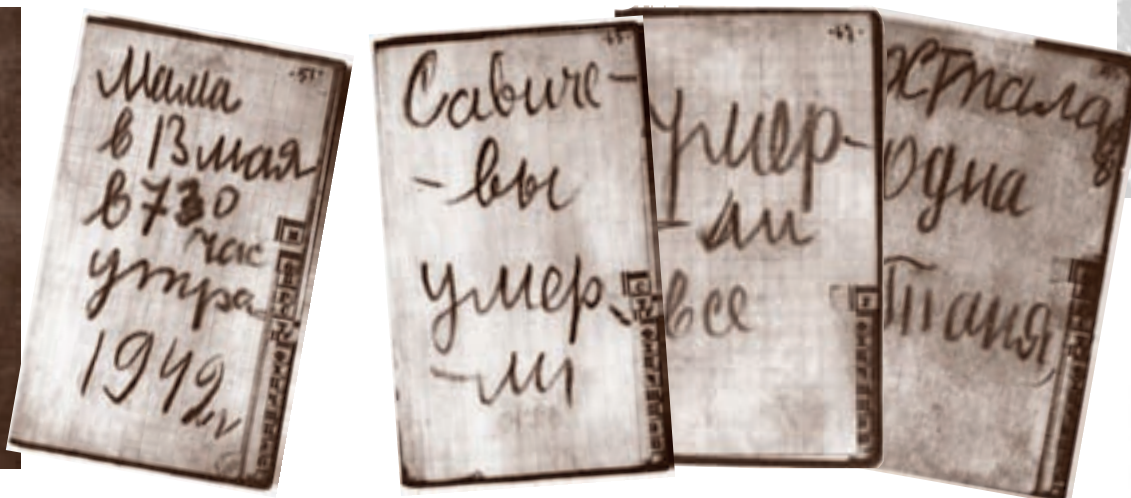 Мама
в 13 мая
в 7 30
час
утра
1942 г
Савиче-
-вы
умер
-ли
Умер-
-ли
все
Осталась
одна
Таня